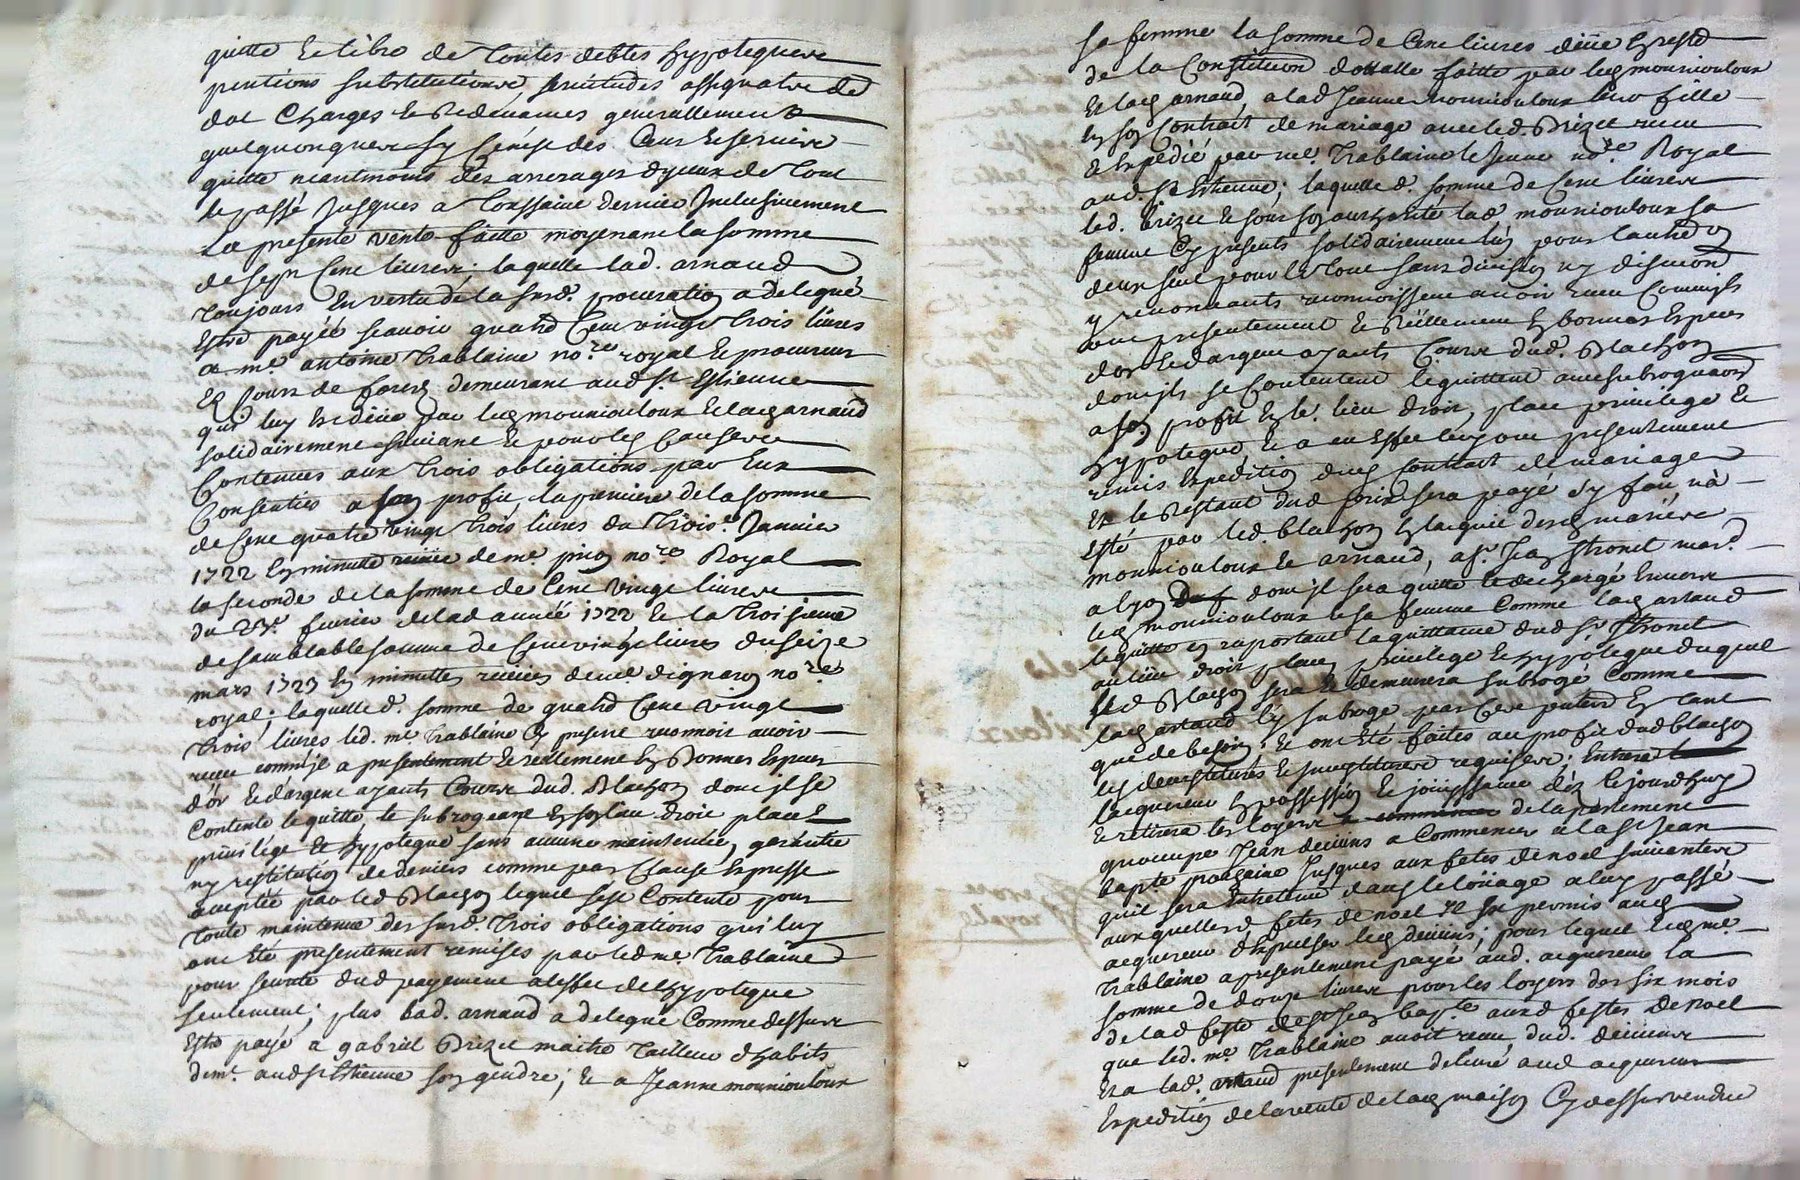 quitte et libre de toutes debtes hypoteques
pentions substitutions, servitudes assignations de
dot charges et redevances generallement
quelquonques sy ce n'est des cens et servis
quitte neantmoins des arrerages d'yceux de tout
le passé jusques a Toussaint dernier Inclusivement
La presente vente faitte moyenant la somme
de sept cent livres; laquelle lad. arnaud
toujours en vertu de la susd. procuration a delegué
Estre payée scavoir quattre cent vingt trois livres
a me. antoine Trablaine nore. royal et procureur
En Cours de forest demeurant aud St Estienne
qui luy est dûe par led mounioulour et lad arnaud
solidairement suivant et pour les causes
Contenues aux trois obligations par Eux
Consenties a son profit, la premiere de la somme
de Cent quatre vingt trois livres du trois.e Janvier
1722 En minutte reçue de me. pinon nore Royal
la seconde de la somme de Cent vingt livres
du 23e. fevrier de lad année 1722 et la troisieme
de semblable somme de Cent vingt livres du seize
mars 1723 En minuttes reçües de me dignaron nore
royal; laquelle d. somme de quattre Cent vingt
trois livres led. me Trablaine Cy present reconnoit avoir
receu comm'jl a presentement et réellement En bonnes Especes
d'or et d'argent ayants Cours dud. Blachon dont jl se
Contente le quitte le subrogeant En son lieu droit place
privilége et hypoteque sans aucune maintenüe, garantie
ny restitution de deniers comme par Clause Expresse
acceptée par led Blachon lequel s'est Contenté pour
toute maintenue des susd. trois obligations qui luy
ont été presentement remises par led me. Trablaine
pour seureté dud payement a l'effet de l'hypoteque
seulement; plus lad. arnaud a delegué Comme dessus
Estre payé a gabriel Brizet maitre Tailleur d'habits
demt. aud St Estienne son gendre; et a Jeanne mounioulour
sa femme la somme de Cent livres dûe En reste
de la Constitution dottalle faitte par led mounioulour
et lad arnaud, a lad Jeanne mounioulour leur fille
En son Contrait de mariage avec led. Brizet receu
et Expedié par me. Trablaine le Jeune nore. Royal
aud. St Estienne; laquelle d. somme de Cent livres
led. Brizet et sous son authorité lad mounioulour sa
femme Cy presents solidairement l'un pour l'autre d'un
deux seul pour le tout sans division ny discution
y renonçants reconnoissent avoir receu Comm'jls
ont presentement et réellement En bonnes Especes
d'or et d'argent ayants Cours dud. Blachon
dont jls se Contentent le quittent avec subrogation
a son profit En le. lieu droit, place privilege et
hypoteque, et a cet Effet luy ont presentement
remis Expedition dud Contrait de mariage
Et le Restant dud prix sera payé s'y fait n'a
Esté par led. blachon En lacquit desd mariés
mounioulour et arnaud, a sr. Jean thonet mard.
a lyon dont jl sera quitte et dechargé Envers
led mounioulour et sa femme Comme lad arnaud
le quitte en raportant la quittance dud sr. thonet
au lieu droit place, privilege et hypoteque duquel
led Blachon sera et demeurera subrogé Comme
lad arnaud l'y subroge par Ces presentes En tant
que de besoin; et ont été faites au profit dud blachon
les devestitures et jnvestitures requises; Entrera
l'acquereur En possession et joüyssance dez ce jourd'huy
et retirera les loyers de l'apartement
qu'occupe Jean deuins a Commencer a la st Jean
bapte prochaine Jusques aux fetes de noel suivantes
qu'il sera Entretenu dans le loüage a luy passé
aux quelles d. fetes de noel il Est permis aud
acquereur d'Expulser led deuins; pour lequel led me.
Trablaine a presentement payé aud. acquereur la
somme de douze livres pour les loyers des six mois
de lad feste de st Jean bapte. aux d festes de noel
que led. me Trablaine avoit receu dud. deuins
Et a lad. arnaud presentement delivré aud acquereur
Expedition de la vente de lad maison Cy dessus vendue